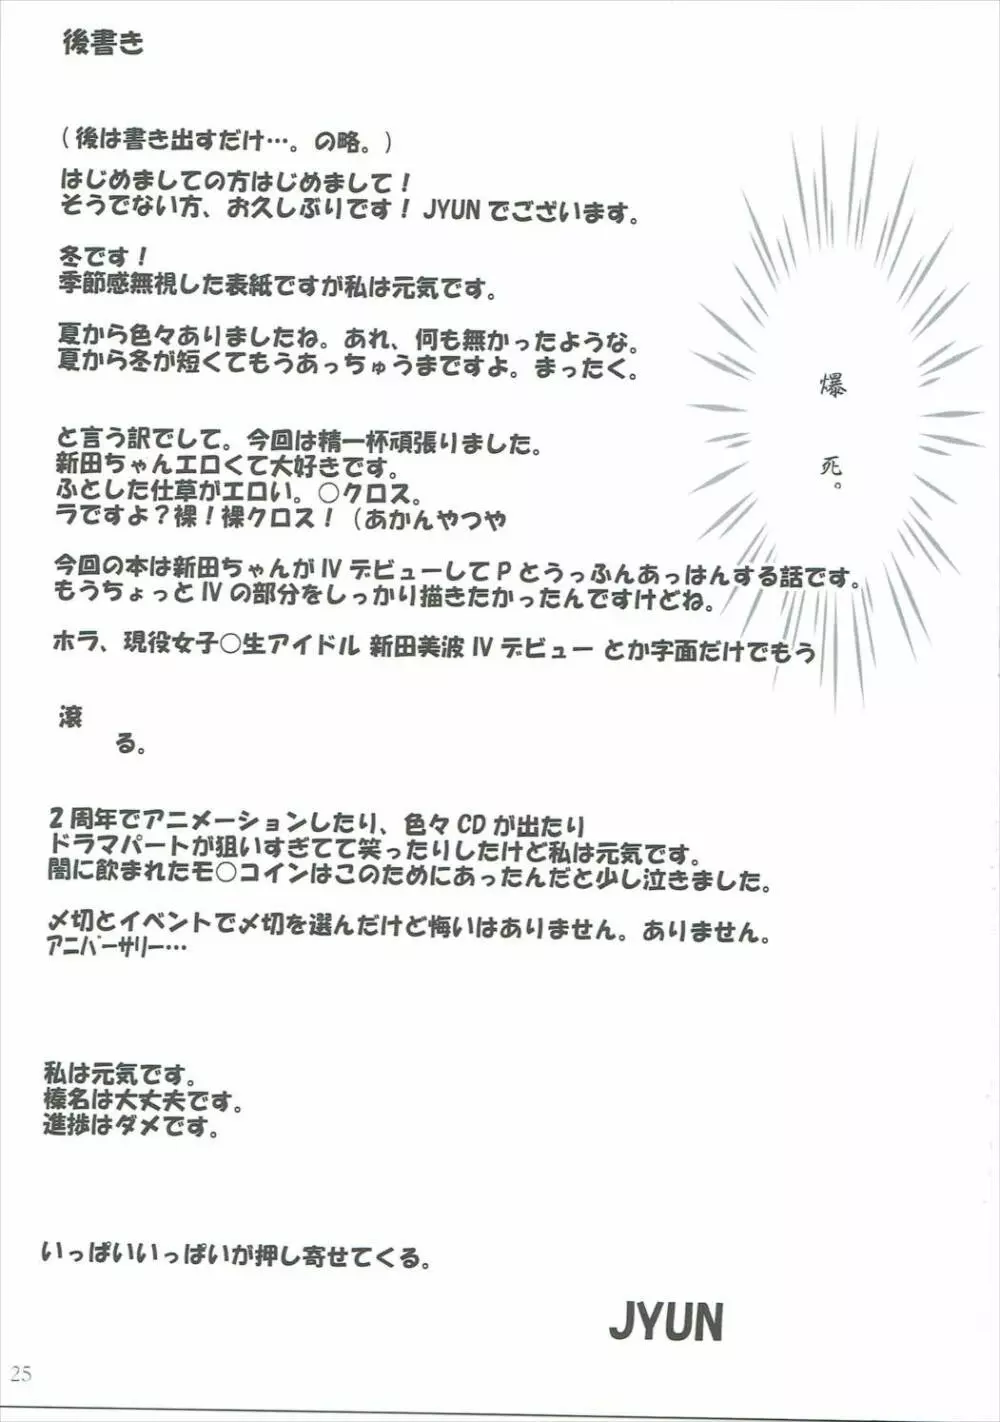 後書き
(後は書き出すだけ…。の略。)
はじめましての方はじめまして!
そうでない方、お久しぶりです! JYUNでございます。
冬です!
季節感無視した表紙ですが私は元気です。
夏から色々ありましたね。あれ、何も無かったような。
夏から冬が短くてもうあっちゅうまですよ。まったく。
と言う訳でして。今回は精一杯頑張りました。
新田ちゃんエロくて大好きです。
ふとした仕草がエロい。○クロス。
ラですよ?裸!裸クロス! (あかんやつや
今回の本は新田ちゃんがIVデビューしてPとうっふんあっはんする話です。
もうちょっとIVの部分をしっかり描きたかったんですけどね。
ホラ、現役女子○生アイドル 新田美波 IV デビュー とか字面だけでもう
滾
る。
2周年でアニメーションしたり、色々CDが出たり
ドラマパートが狙いすぎてて笑ったりしたけど私は元気です。
闇に飲まれたモ○コインはこのためにあったんだと少し泣きました。
〆切とイベントで〆切を選んだけど悔いはありません。ありません。
アニバーサリー…
私は元気です。
榛名は大丈夫です。
進捗はダメです。
いっぱいいっぱいが押し寄せてくる。
JYUN
爆死。
25